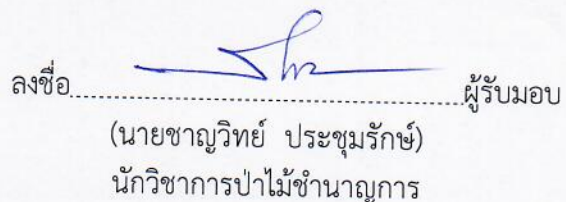 ลงชื่อ........................................................ผู้รับมอบ
(นายชาญวิทย์ ประชุมรักษ์)
นักวิชาการป่าไม้ชำนาญการ